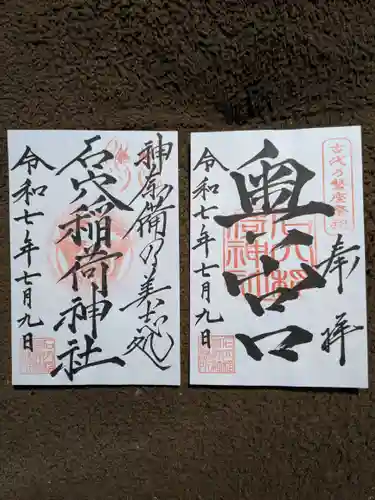 古代乃磐座祭祀
奉拝
奥宮
令和七年七月九日
神奈備乃美
石穴稲荷神社
令和七年七月九日